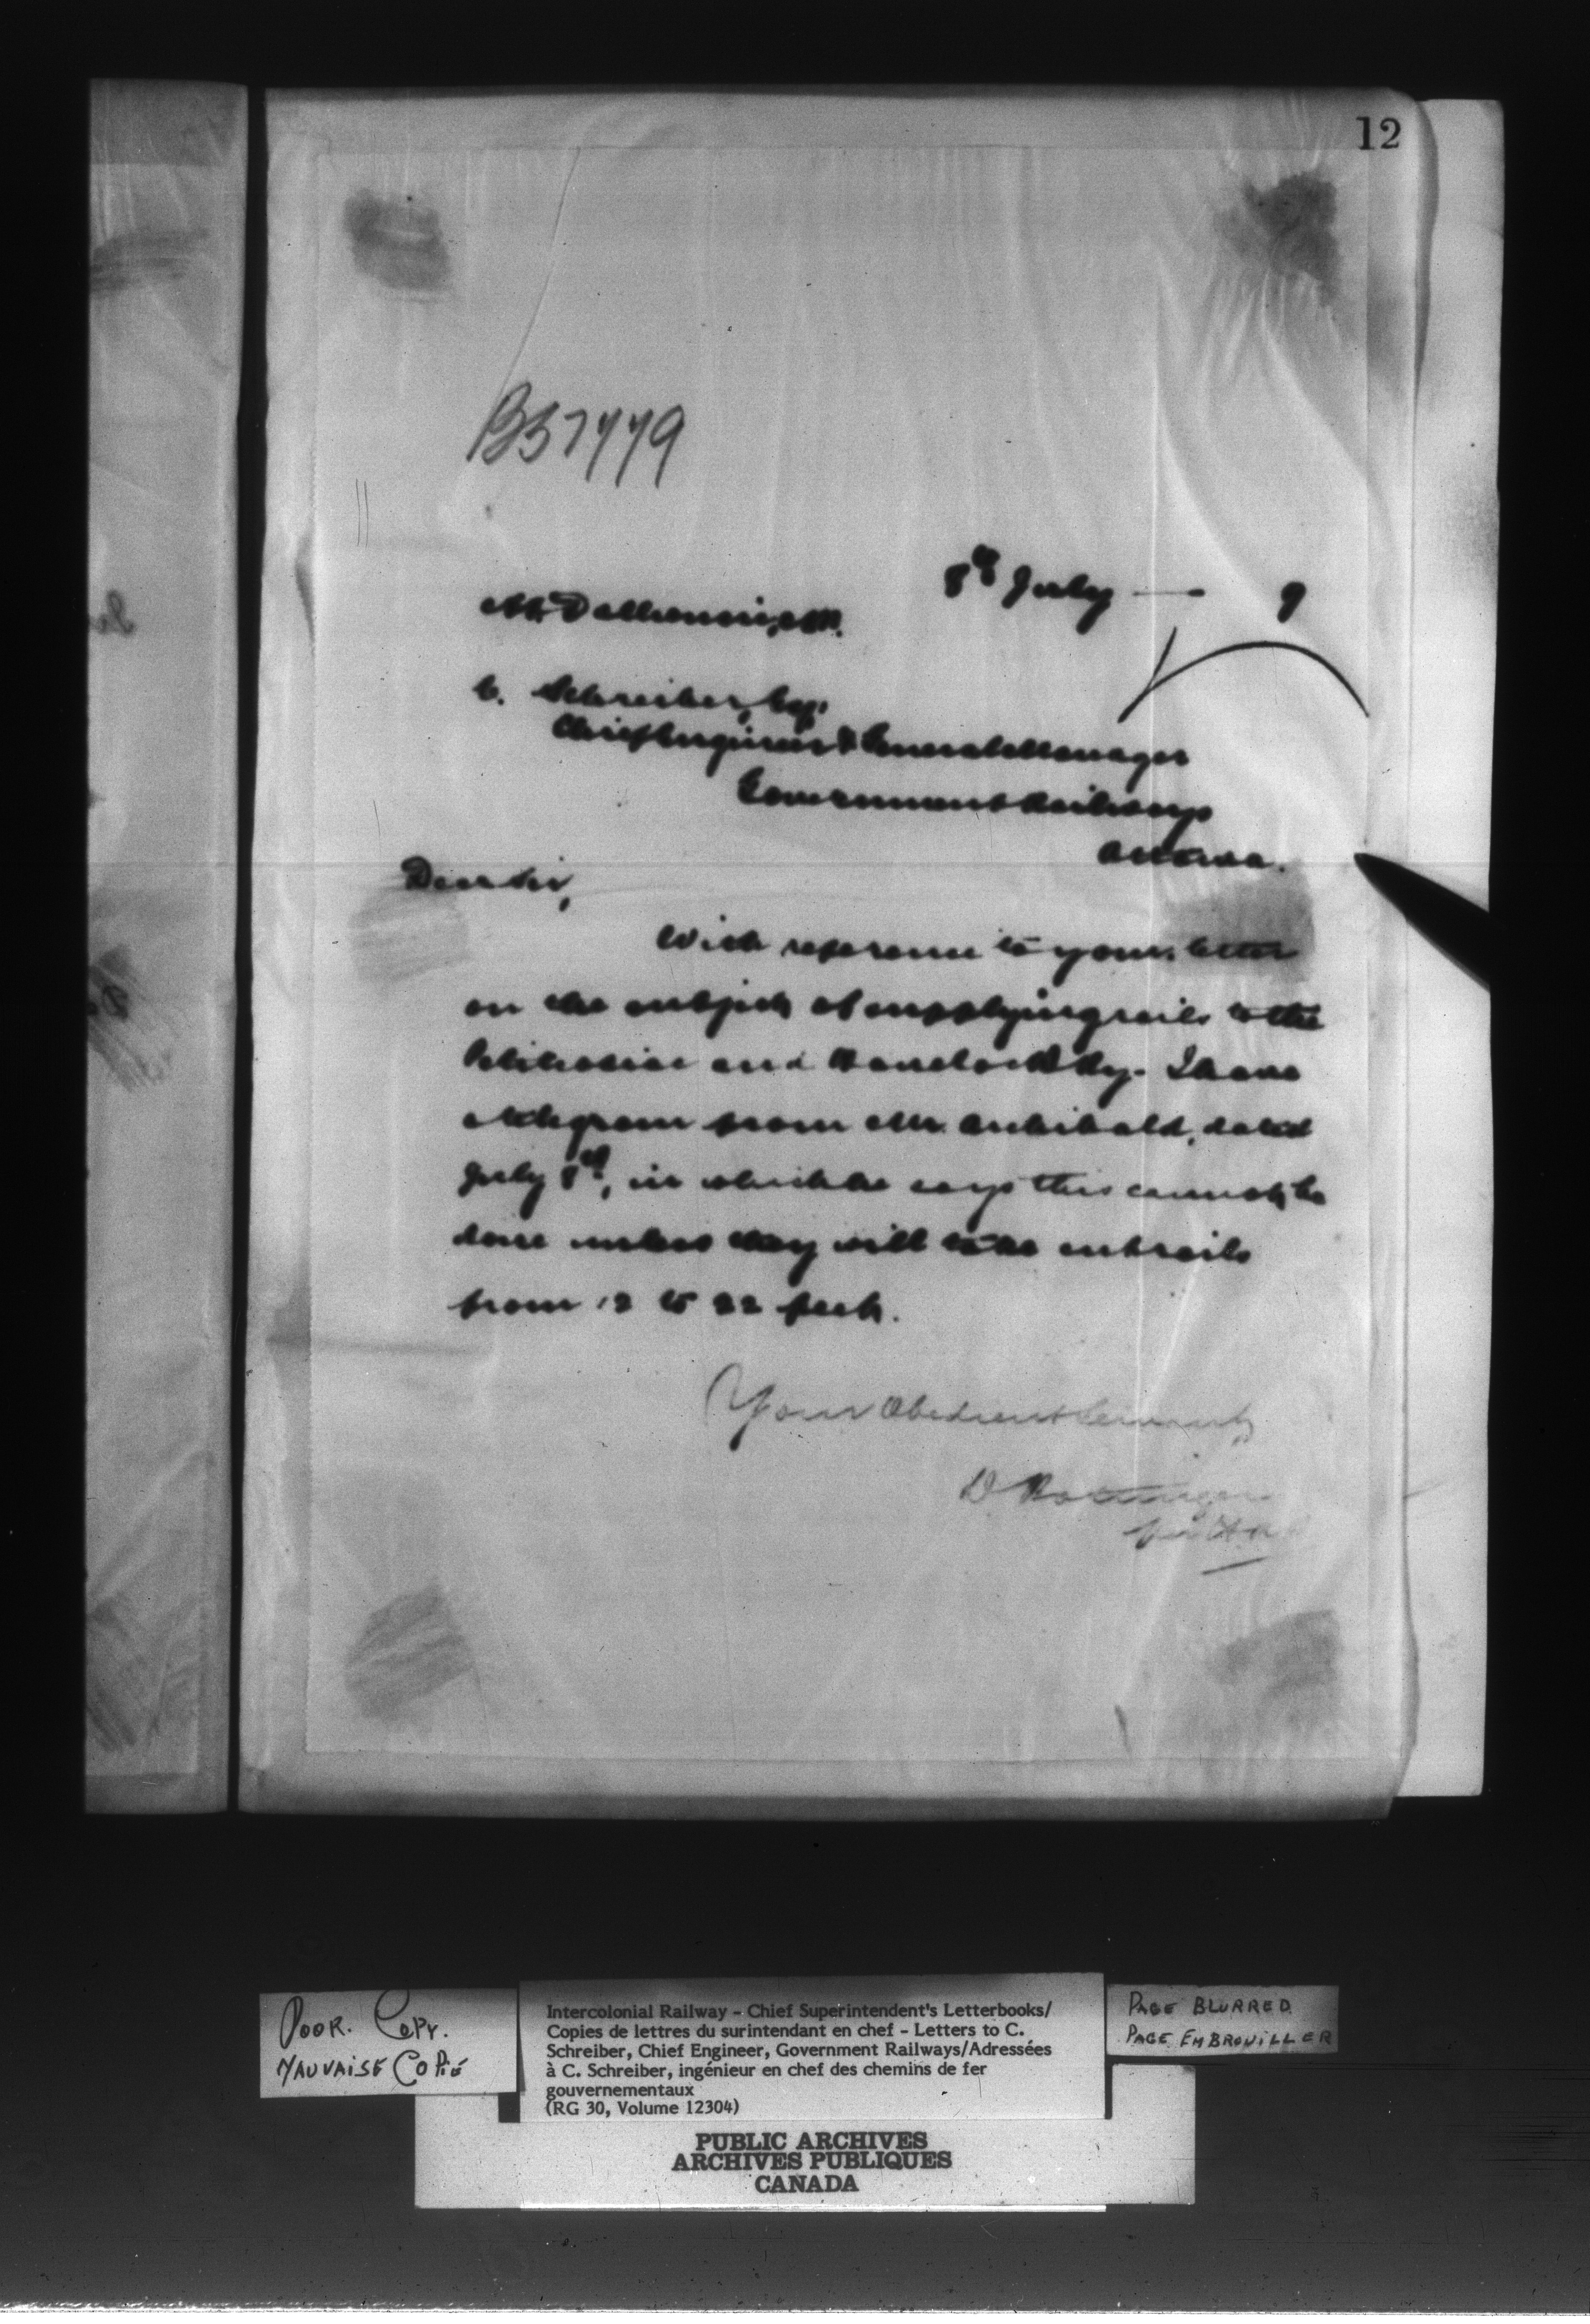 12
B37779
8th July — 9
At Dalhousie, N.B.
C. Schreiber, Esq.
Chief Engineer & General Manager
Government Railways
Ottawa.
Dear Sir,
With reference to your letter
on the subject of supplying rails to the
Petitcodiac and Havelock Ry. I have
a telegram from Mr. Archibald, dated
July 8th, in which he says this cannot be
done unless they will take cut rails
from 12 to 22 feet.
Your Obedient Servant,
D Pottinger
per
POOR. COPY.
MAUVAISE COPIE
Intercolonial Railway - Chief Superintendent's Letterbooks/
Copies de lettres du surintendant en chef - Letters to C.
Schreiber, Chief Engineer, Government Railways/Adressées
à C. Schreiber, ingénieur en chef des chemins de fer
gouvernementaux
(RG 30, Volume 12304)
PAGE BLURRED
PAGE EMBROUILLER
PUBLIC ARCHIVES
ARCHIVES PUBLIQUES
CANADA